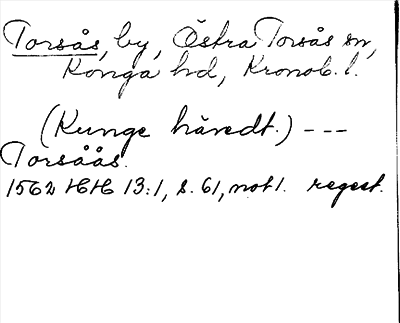 Torsås, by, Östra Torsås sn,
Konga hd, Kronob. l.
(Kunge häredt.) ---
Torsåås.
1562 HH 13:1, s. 61, not 1. regest.